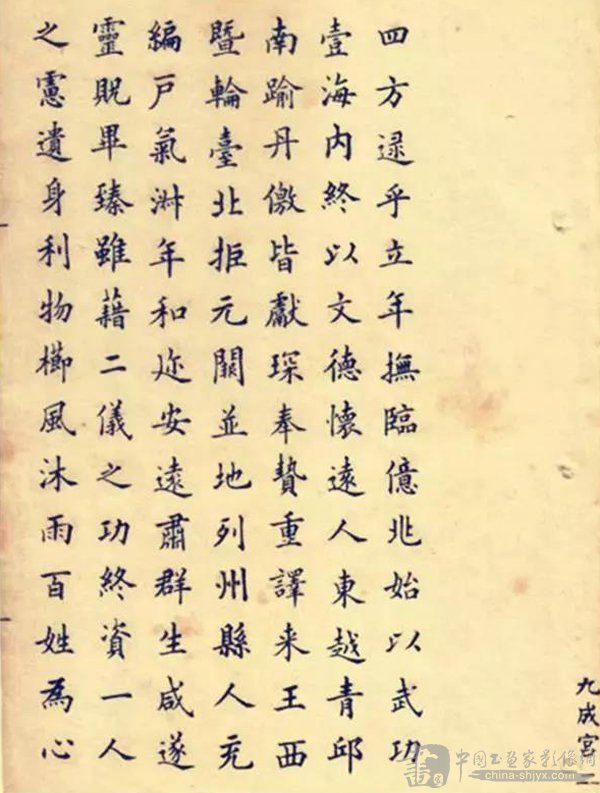 四方逮乎立年撫臨億兆始以武功
壹海内終以文德懷遠人東越青邱
南踰丹徼皆獻琛奉贄重譯来王西
暨輪臺北拒元闕並地列州縣人充
編戸氣淑年和迩安遠肅群生咸遂
靈貺畢臻雖藉二儀之功終資一人
之慮遺身利物櫛風沐雨百姓為心
九成宮二
中国书画家影像网
www.china-shjyx.com